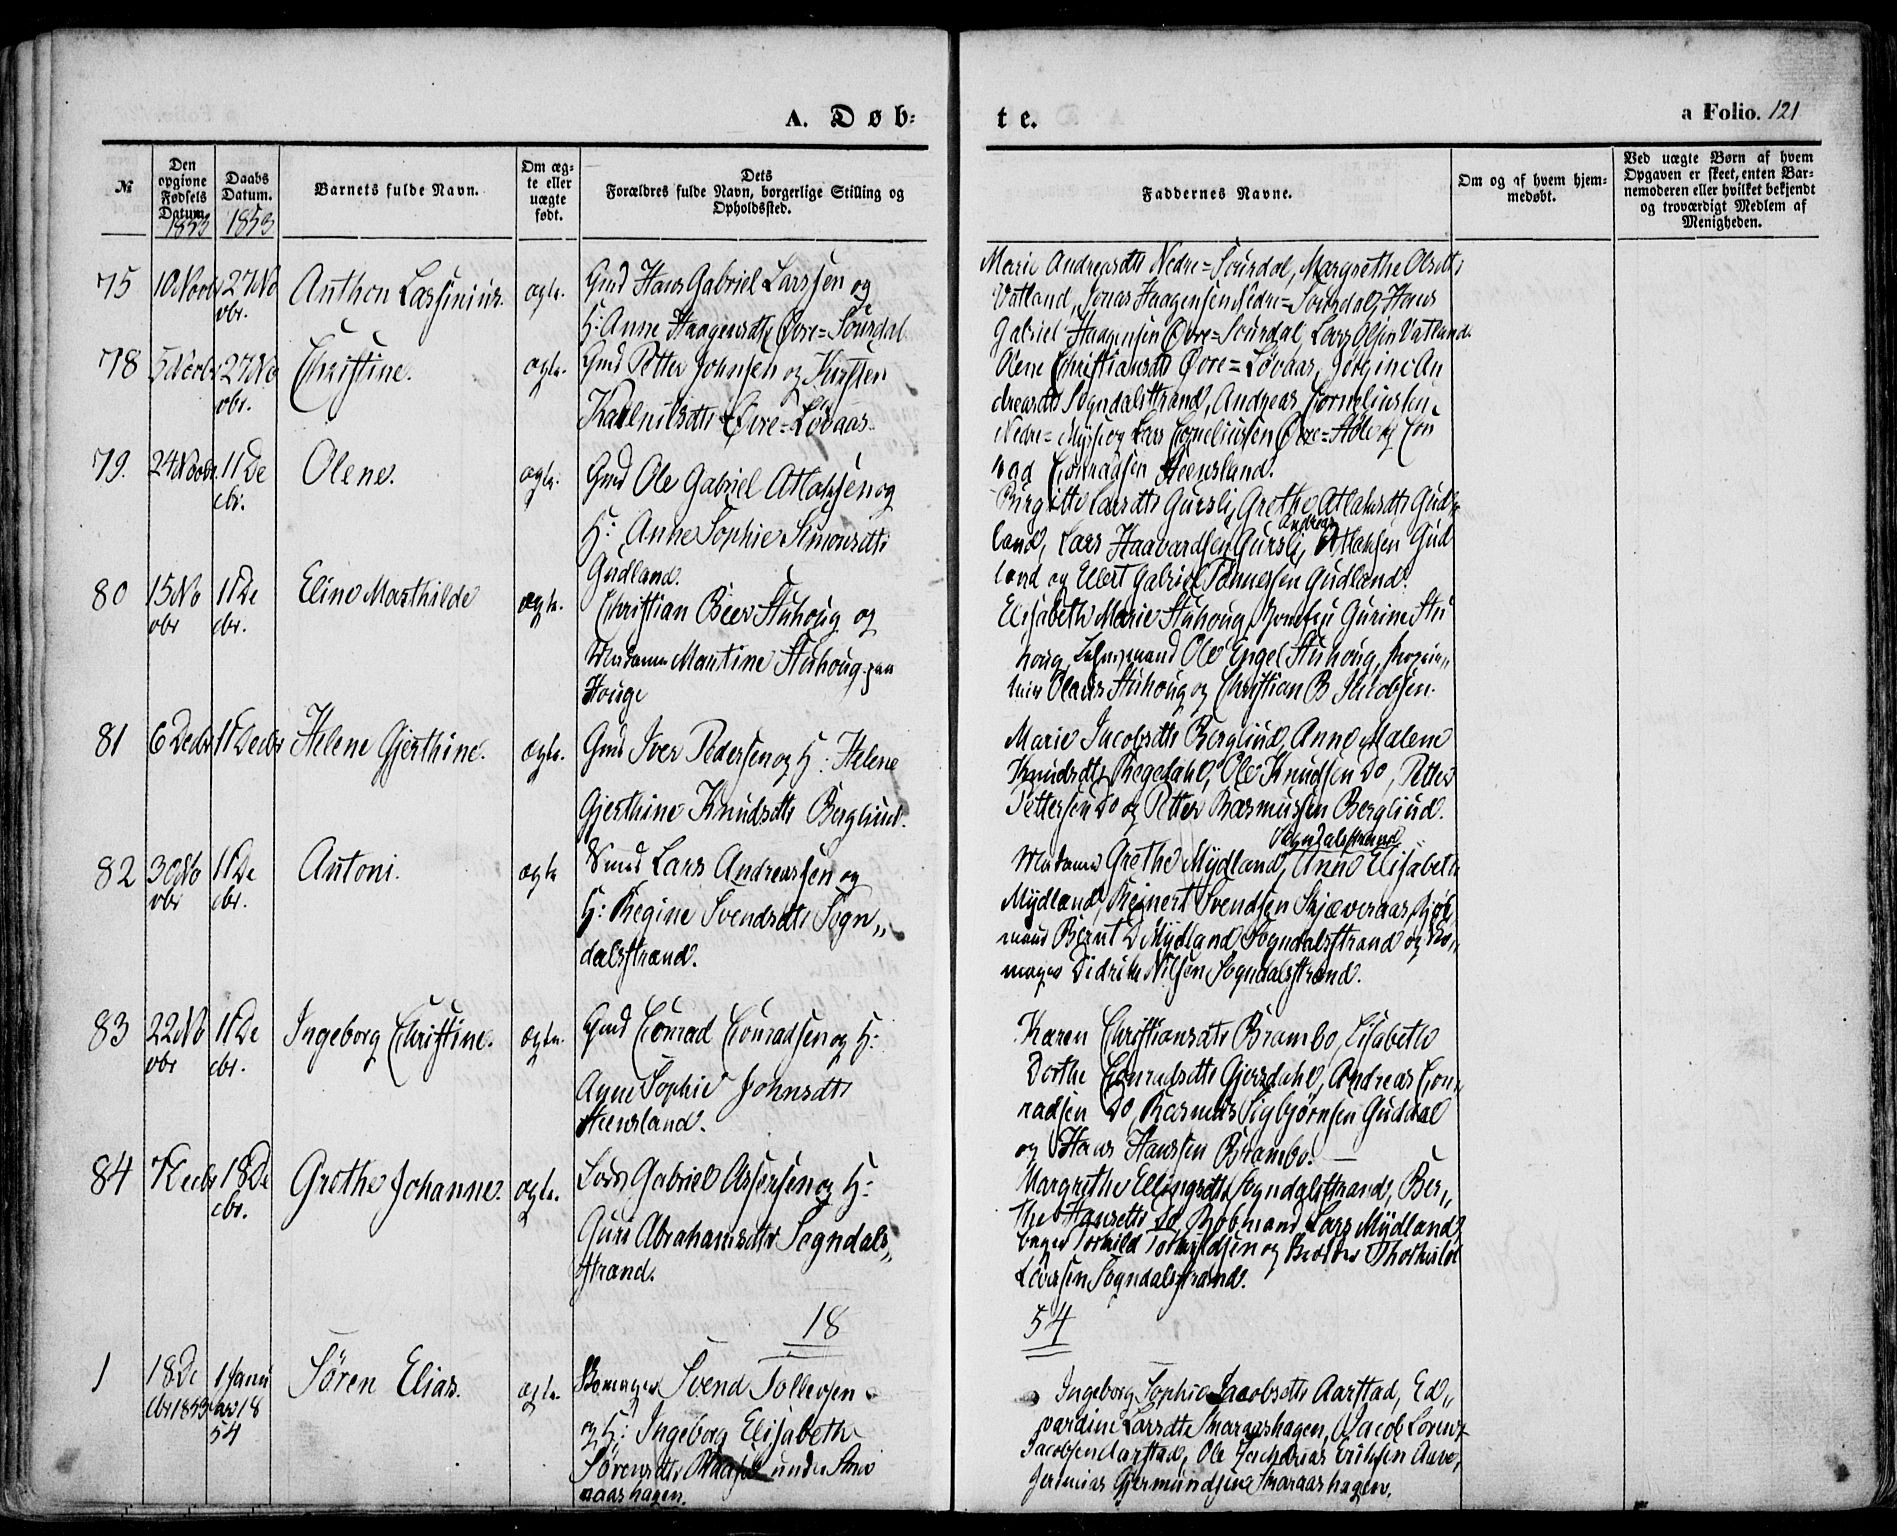 A. Døb=
te.
a Folio. 121
№
Den opgivne Fødsels Datum. 1853
Daabs Datum. 1853
Barnets fulde Navn.
Om ægte eller uægte født.
Dets Forældres fulde Navn, borgerlige Stilling og Opholdssted.
Faddernes Navne.
Om og af hvem hjemmedøbt.
Ved uægte Børn af hvem Opgaven er skeet, enten Barnemoderen eller hvilket bekjendt og troværdigt Medlem af Menigheden.
75
10 Novbr
27 No
vbr.
Anthon Lassenius.
ægte.
Gmd Hans Gabriel Larssen og
H: Anne Haagensdtr Øvre=Sourdal
Marie Andreasdtr Nedre=Sourdal, Margrethe Olsdtr
Vatland, Jonas Haagensen Nedre=Sourdal, Hans
Gabriel Haagensen Øvre=Sourdal, Lars Olsen Vatland.
78
5 Novbr
27 No
vbr.
Christine.
ægte.
Gmd Petter Johnsen og Kirsten
Karlnilsdtr Øvre=Løvaas.
Olene Christiansdtr Øvre=Løvaas, Jørgine An
dreasdtr Sogndalstrand, Andreas Corneliussen
Nedre=Mysberg Lars Corneliussen Øvre=Høle og Con
rad Conradsen Steensland.
79.
24 Novbr.
11 De
cbr.
Olene.
ægte.
Gmd Ole Gabriel Atlaksen og
H: Anne Sophie Simonsdtr
Gudland.
Birgitte Larsdtr Gursli, Grethe Atlaksdtr Gud=
Andreas
land, Lars Haavardsen Gursli, Atlaksen Gud
land og Ellert Gabriel Tønnessen Gudland.
80
15 No
vbr
11 De
cbr.
Eline Marthilde
ægte.
Christian Beer Stuhoug og
Madame Mantine Stuhoug paa
Houge
Elisabeth Marie Stuhoug, Jomfru Gurine Stu
houg, Lehnsmand Ole Engel Stuhoug,
Olaus Stuhoug og Christian B Jacobsen.
81
6 Decbr
11 Decbr
Helene Gjerthine.
ægte.
Gmd Iver Pedersen og H: Helene
Gjerthine Knudsdtr Bergliud.
Marie Jacobsdtr Bergliud, Anne Malene
Knudsdtr Regedahl, Ole Knudsen Do, Petter
Pettersen Do og Petter Rasmussen Bergliud.
82
30 No
vbr
11 De
cbr.
Antoni.
ægte
Smed Lars Andreassen og
H: Regine Svendsdtr Sogn„
dalsstrand.
Sogndalsstrand
Madame Grethe Mydland, Anne Elisabeth
Mydland, Reinert Svendsen Skjæveraas, Kjøb
mand Bernt D Mydland Sogndalsstrand og Sko„
mager Didrik Nilsen Sogndalsstrand.
83
22 No
vbr
11 De
cbr.
Ingeborg Christine.
ægte.
Gmd Conrad Conradsen og H:
Anne Sophie Johnsdtr
Steensland.
Karen Christiansdtr Brambo, Elisabeth
Dorthe Conradsdtr Gjersdahl, Andreas Con„
radsen Do, Rasmus Sigbjørnsen Guddal
og Hans Hanssen Brambo.
84
7 Decbr
18 De
cbr.
Grethe Johanne.
ægte.
Lods Gabriel Assersen og H:
Guri Abrahamsdtr Sogndals„
strand.
Margrethe Ellingsdtr Sogndalsstrand, Ber„
the Hansdtr Do, Kjøbmand Lars Mydland,
Torkild Torkildsen og Thorkild
Larssen Sogndalsstrand.
18
54
1
18 De
cbr 1853
1 Janu
ar 18
54
Søren Elias.
ægte.
Skomager Svend Tollevsen
og H: Ingeborg Elisabeth
Sørensdtr under Sma
raashagen.
Ingeborg Sophie Jacobsdtr Aarstad, Ed„
vardine Larsdtr Smaraashagen, Jacob Lorentz
Jacobsen Aarstad, Ole Zacharias Eriksen Aune,
Jeremias Gjermundsen Smaraashagen.